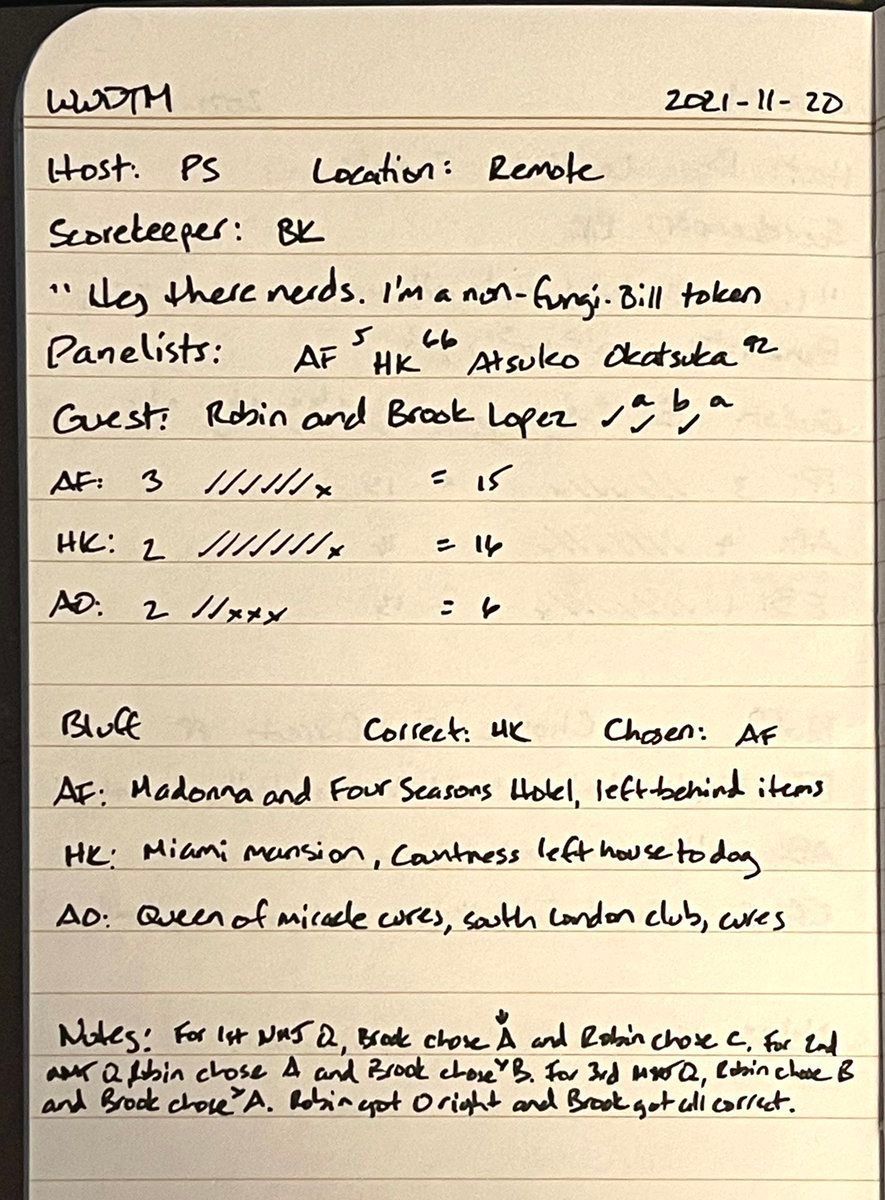 WWDTM 2021-11-20
Host: PS Location: Remote
Scorekeeper: BK
"Hey there nerds. I'm a non-fungi-Bill token
Panelists: AF 5 HK 66 Atsuko Okatsuka 92
Guest: Robin and Brook Lopez ✓ a ✓ b ✓ a
AF: 3 //////x = 15
HK: 2 ///////x = 16
AO: 2 //xxx = 6
Bluff Correct: HK Chosen: AF
AF: Madonna and Four Seasons Hotel, left-behind items
HK: Miami mansion, Countness left house to dog
AO: Queen of miracle cures, south London club, cures
Notes: For 1st NMJ Q, Brook chose A and Robin chose C. For 2nd
NMJ Q Robin chose A and Brook chose B. For 3rd NMJ Q, Robin chose B
and Brook chose A. Robin got 0 right and Brook got all correct.